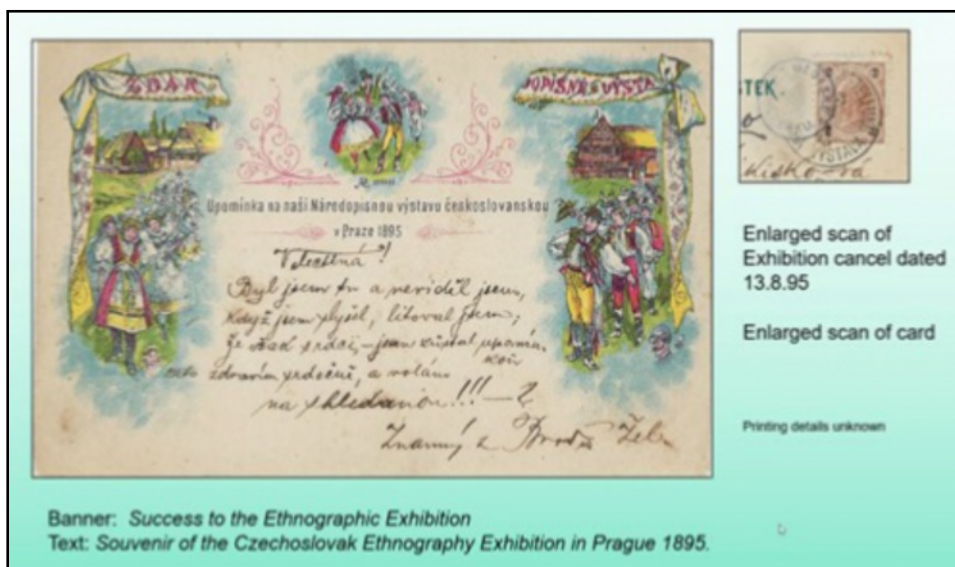 ZDAR
Upomínka na naši Národopisnou výstavu českoslovanskou
v Praze 1895
Velectěná!
Byl jsem tu a neviděl jsem,
když jsem slyšel, litoval jsem,
zdravím srdečně, a volám
na shledanou!!!
Známý z Brodu Žel.
STEK.
Enlarged scan of
Exhibition cancel dated
13.8.95
Enlarged scan of card
Printing details unknown
Banner: Success to the Ethnographic Exhibition
Text: Souvenir of the Czechoslovak Ethnography Exhibition in Prague 1895.